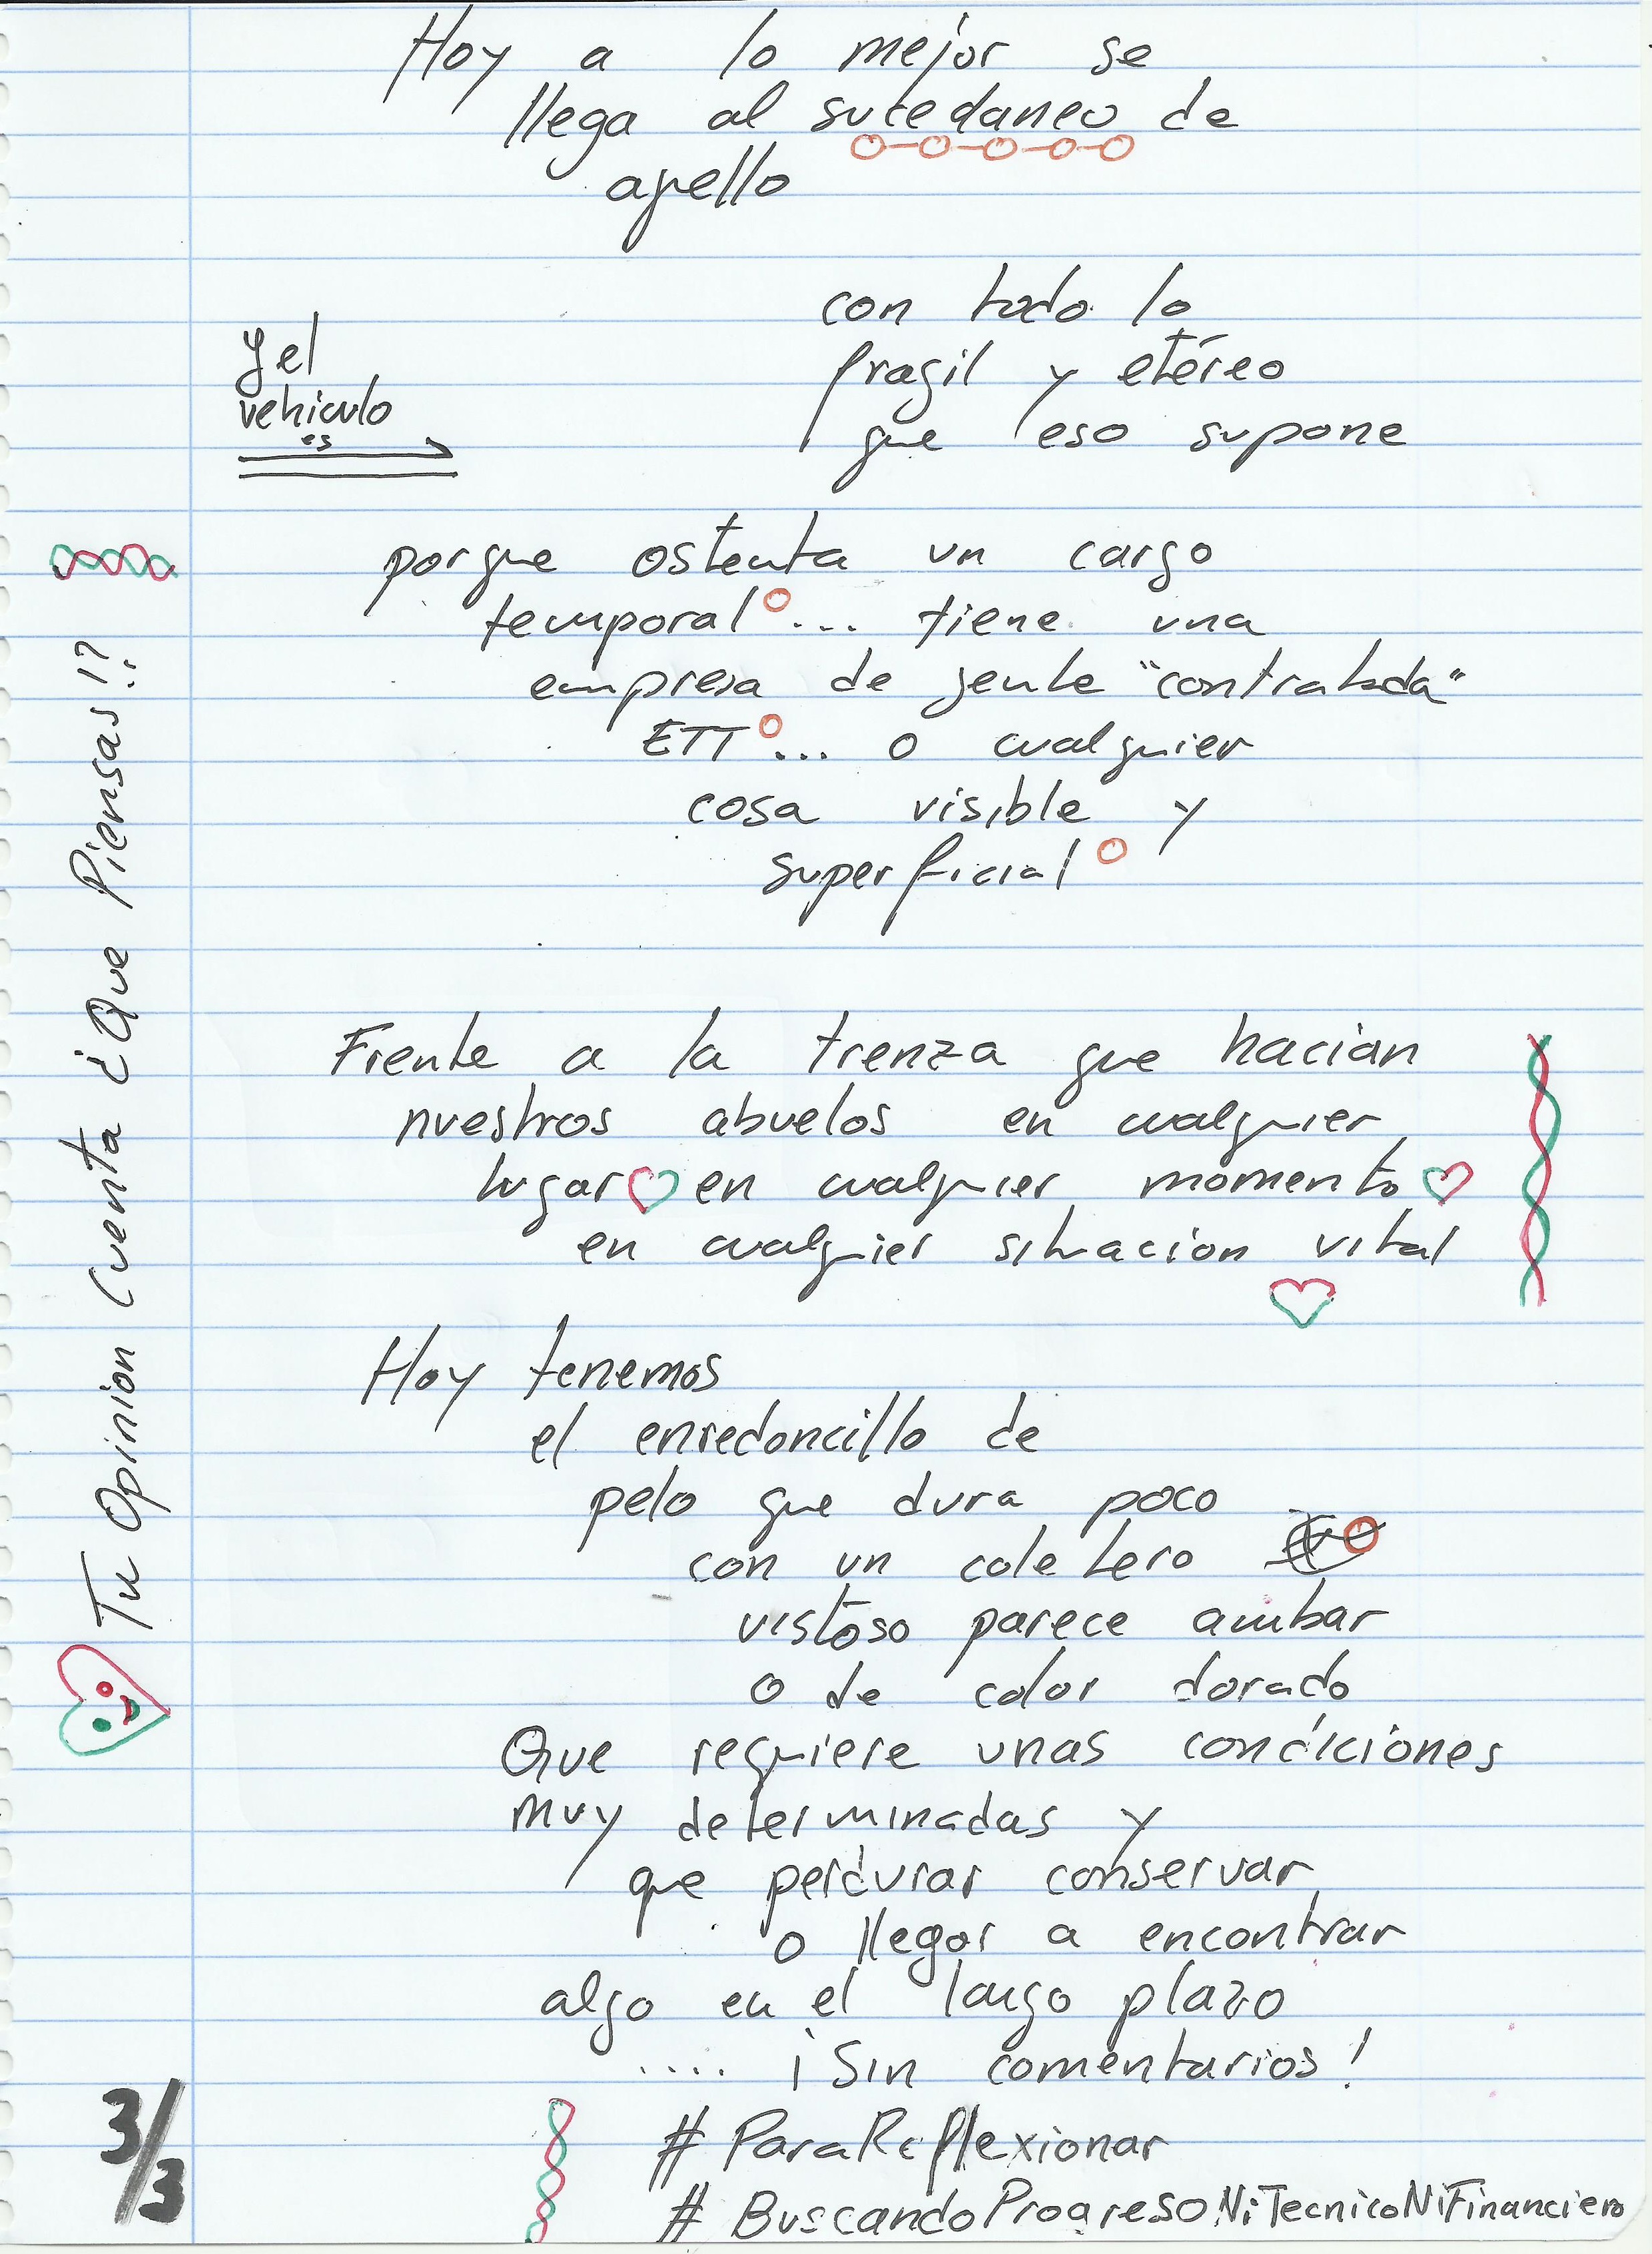 Hoy a lo mejor se
llega al sucedaneo de
aquello
con todo lo
fragil y etéreo
que eso supone
y el
vehiculo
es
porque ostenta un cargo
temporal ... tiene una
empresa de gente "contratada"
ETT ... o cualquier
cosa visible y
superficial
Frente a la trenza que hacian
nuestros abuelos en cualquier
lugar en cualquier momento
en cualquier situacion vital
Hoy tenemos
el enredoncillo de
pelo que dura poco
con un coletero
vistoso parece ambar
o de color dorado
Que requiere unas condiciones
muy determinadas y
que perdurar conservar
o llegar a encontrar
algo en el largo plazo
.... ¡Sin comentarios!
#ParaReflexionar
#BuscandoProgresoNiTecnicoNiFinanciero
Tu Opinion Cuenta ¿Que Piensas!?
3/3